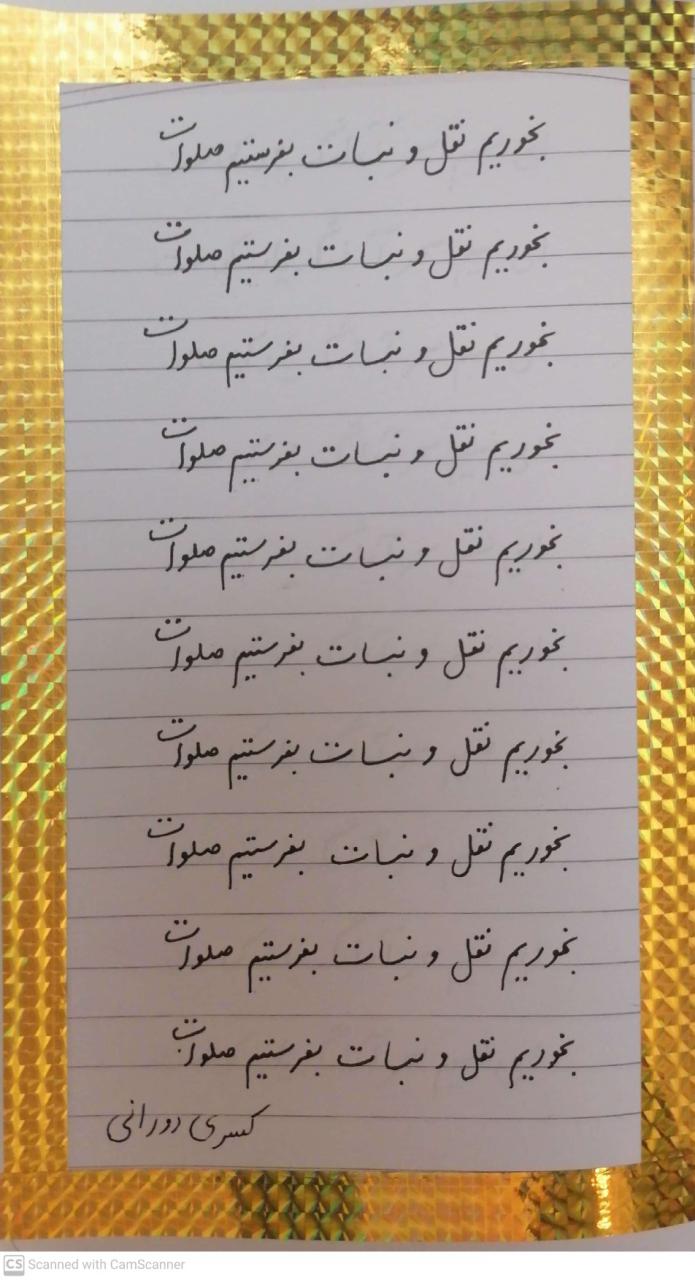 بخوریم نقل و نبات بفرستیم صلوات
بخوریم نقل و نبات بفرستیم صلوات
بخوریم نقل و نبات بفرستیم صلوات
بخوریم نقل و نبات بفرستیم صلوات
بخوریم نقل و نبات بفرستیم صلوات
بخوریم نقل و نبات بفرستیم صلوات
بخوریم نقل و نبات بفرستیم صلوات
بخوریم نقل و نبات بفرستیم صلوات
بخوریم نقل و نبات بفرستیم صلوات
بخوریم نقل و نبات بفرستیم صلوات
کسری دورانی
CS Scanned with CamScanner